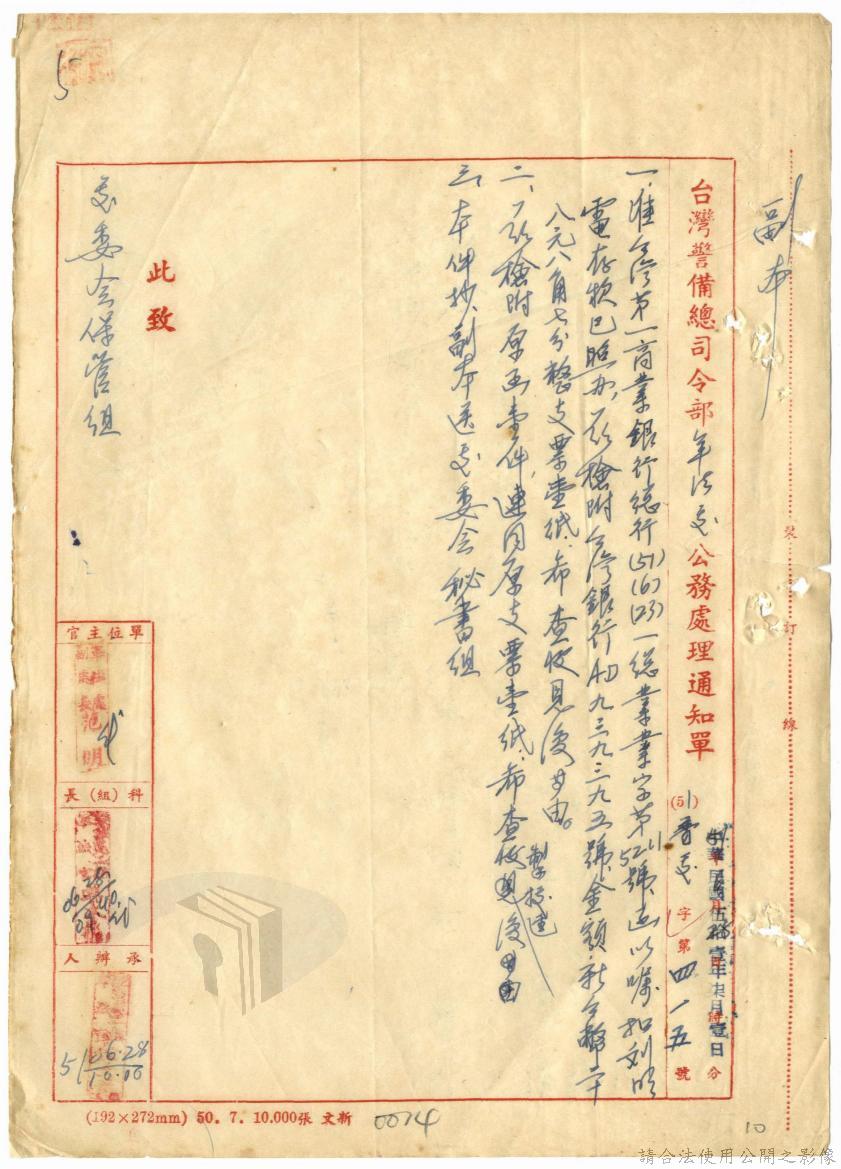 副本
裝訂線
台灣警備總司令部軍法處公務處理通知單
中華民國伍拾壹年柒月壹日
時 分
(51)警交字第四一五號
一、准台灣第一商業銀行總行(51)(6)(23)一總業業字第5211號函以囑扣刘明
電存款已照办，茲檢附台灣銀行AD九三九三九五號，金額新台幣二千
八元八角七分整支票壹紙，希查收見復由。
二、茲檢附原函壹件，連同原支票壹紙，希查收製據逕見復由
三、本件抄、副本送交委会秘書組
此致
交委会保管組
單位主官
范明
科(組)長
06.28
承辦人
51 06.28
10.00
(192×272mm) 50. 7. 10.000張 文新
0074
10
5
請合法使用公開之影像